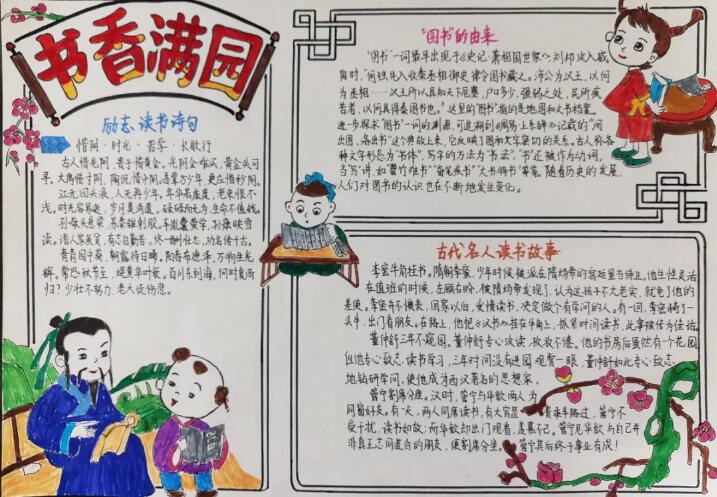 书香满园
励志读书诗句
惜阴·时光·苦学·长歌行
古人惜光阴，贵于惜黄金。光阴金难买，黄金失可
寻。大禹惜寸阴，陶侃惜分阴。吾辈方少年，更应惜秒阴。
江流回头浪，人无再少年。年华若虚度，老来恨不
浅。时光容易逝，岁月莫消遣。碌碌而无为，生命不值钱。
孙敬头悬梁，苏秦锥刺股。车胤囊萤学，孙康映雪
读。诸人家虽贫，有志自勤苦。终一酬壮志，功名传千古。
青青园中葵，朝露待日晞。阳春布德泽，万物生光
辉。常恐秋节至，焜黄华叶衰。百川东到海，何时复西
归？少壮不努力，老大徒伤悲。
"图书"的由来
"图书"一词最早出现于《史记·萧相国世家》，刘邦攻入咸
阳时，"何独先入收秦丞相御史律令图书藏之。沛公为汉王，以何
为丞相……汉王所以具知天下厄塞，户口多少，强弱之处，民所疾
苦者，以何具得秦图书也。"这里的"图书"指的是地图和文书档案。
进一步探求"图书"一词的渊源，可追溯到《周易·上系辞》记载的"河
出图、洛出书"这个典故上来，它反映了图和文字密切的关系。古人称各
种文字形态为"书体"，写字的方法为"书法"，"书"还被作为动词，
当"写"讲，如"罄竹难书""奋笔疾书""大书特书"等等。随着历史的发展，
人们对图书的认识也在不断地发生变化。
古代名人读书故事
李密牛角挂书。隋朝李密，少年时候被派在隋炀帝的宫廷里当侍卫。他生性灵活
在值班的时候，左顾右盼，被隋炀帝发现了，认为这孩子不大老实，就免了他的
差使。李密并不懊丧，回家以后，发愤读书，决定做个有学问的人。有一回，李密骑了一
头牛，出门看朋友。在路上，他把《汉书》挂在牛角上，抓紧时间读书，此事被传为佳话。
董仲舒三年不窥园。董仲舒专心攻读，孜孜不倦。他的书房后虽然有个花园
但他专心致志，读书学习，三年时间没有进园观赏一眼，董仲舒如此专心致志，
地钻研学问，使他成为西汉著名的思想家。
管宁割席分坐。汉时，管宁与华歆两人为
同窗好友。有一天，两人同席读书，有大官显乘车路过，管宁不
受干扰，读书如故；而华歆却出门观看，羡慕不已。管宁见华歆与自己并
非真正志同道合的朋友，便割席分坐。管宁其后终于事业有成！